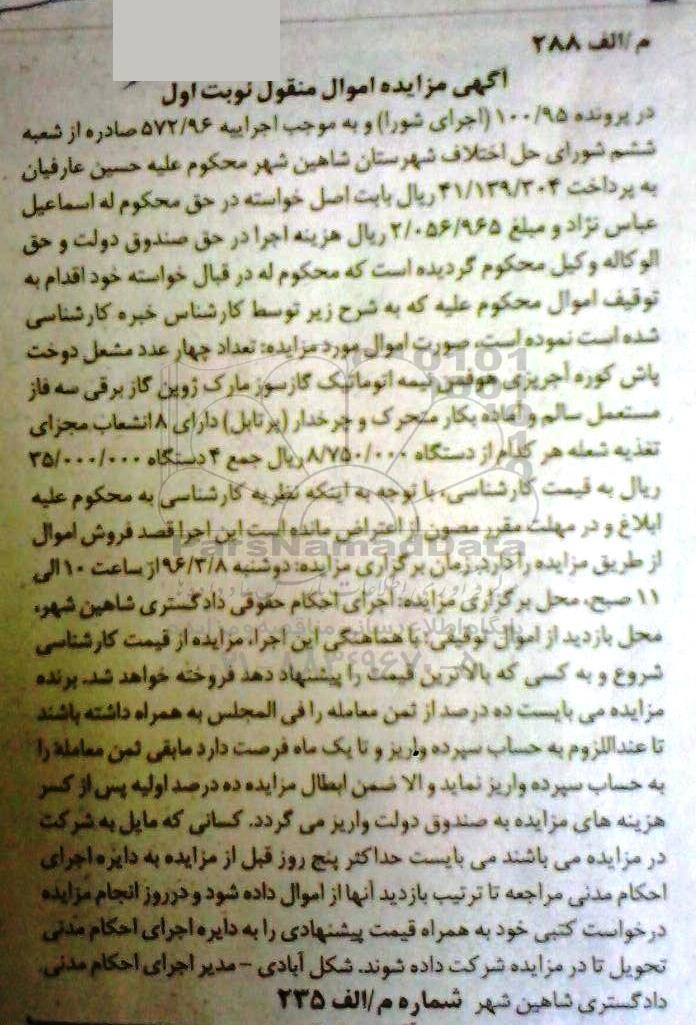 م/الف ۲۸۸
آگهی مزایده اموال منقول نوبت اول
در پرونده ۱۰۰/۹۵ (اجرای شورا) و به موجب اجراییه ۵۷۲/۹۶ صادره از شعبه
ششم شورای حل اختلاف شهرستان شاهین شهر محکوم علیه حسین عارفیان
به پرداخت ۴۱/۱۳۹/۳۰۴ ریال بابت اصل خواسته در حق محکوم له اسماعیل
عباس نژاد و مبلغ ۲/۰۵۶/۹۶۵ ریال هزینه اجرا در حق صندوق دولت و حق
الوکاله وکیل محکوم گردیده است که محکوم له در قبال خواسته خود اقدام به
توقیف اموال محکوم علیه که به شرح زیر توسط کارشناس خبره کارشناسی
شده است نموده است، صورت اموال مورد مزایده: تعداد چهار عدد مشعل دوخت
پاش کوره آجرپزی هوفمن نیمه اتوماتیک گازسوز مارک ژوپن گاز برقی سه فاز
مستعمل سالم و آماده بکار متحرک و چرخدار (پرتابل) دارای ۸ انشعاب مجزای
تغذیه شعله هر کدام از دستگاه ۸/۷۵۰/۰۰۰ ریال جمع ۴ دستگاه ۳۵/۰۰۰/۰۰۰
ریال به قیمت کارشناسی، با توجه به اینکه نظریه کارشناسی به محکوم علیه
ابلاغ و در مهلت مقرر مصون از اعتراض مانده است این اجرا قصد فروش اموال
از طریق مزایده را دارد. زمان برگزاری مزایده: دوشنبه ۹۶/۳/۸ از ساعت ۱۰ الی
۱۱ صبح، محل برگزاری مزایده: اجرای احکام حقوقی دادگستری شاهین شهر،
محل بازدید از اموال توقیفی: با هماهنگی این اجرا، مزایده از قیمت کارشناسی
شروع و به کسی که بالاترین قیمت را پیشنهاد دهد فروخته خواهد شد. برنده
مزایده می بایست ده درصد از ثمن معامله را فی المجلس به همراه داشته باشند
تا عنداللزوم به حساب سپرده واریز و تا یک ماه فرصت دارد مابقی ثمن معاملة را
به حساب سپرده واریز نماید و الا ضمن ابطال مزایده ده درصد اولیه پس از کسر
هزینه های مزایده به صندوق دولت واریز می گردد. کسانی که مایل به شرکت
در مزایده می باشند می بایست حداکثر پنج روز قبل از مزایده به دایره اجرای
احکام مدنی مراجعه تا ترتیب بازدید آنها از اموال داده شود و درروز انجام مزایده
درخواست کتبی خود به همراه قیمت پیشنهادی را به دایره اجرای احکام مدنی
تحویل تا در مزایده شرکت داده شوند. شکل آبادی - مدیر اجرای احکام مدنی
دادگستری شاهین شهر شماره م/الف ۲۳۵
ParsNamadData